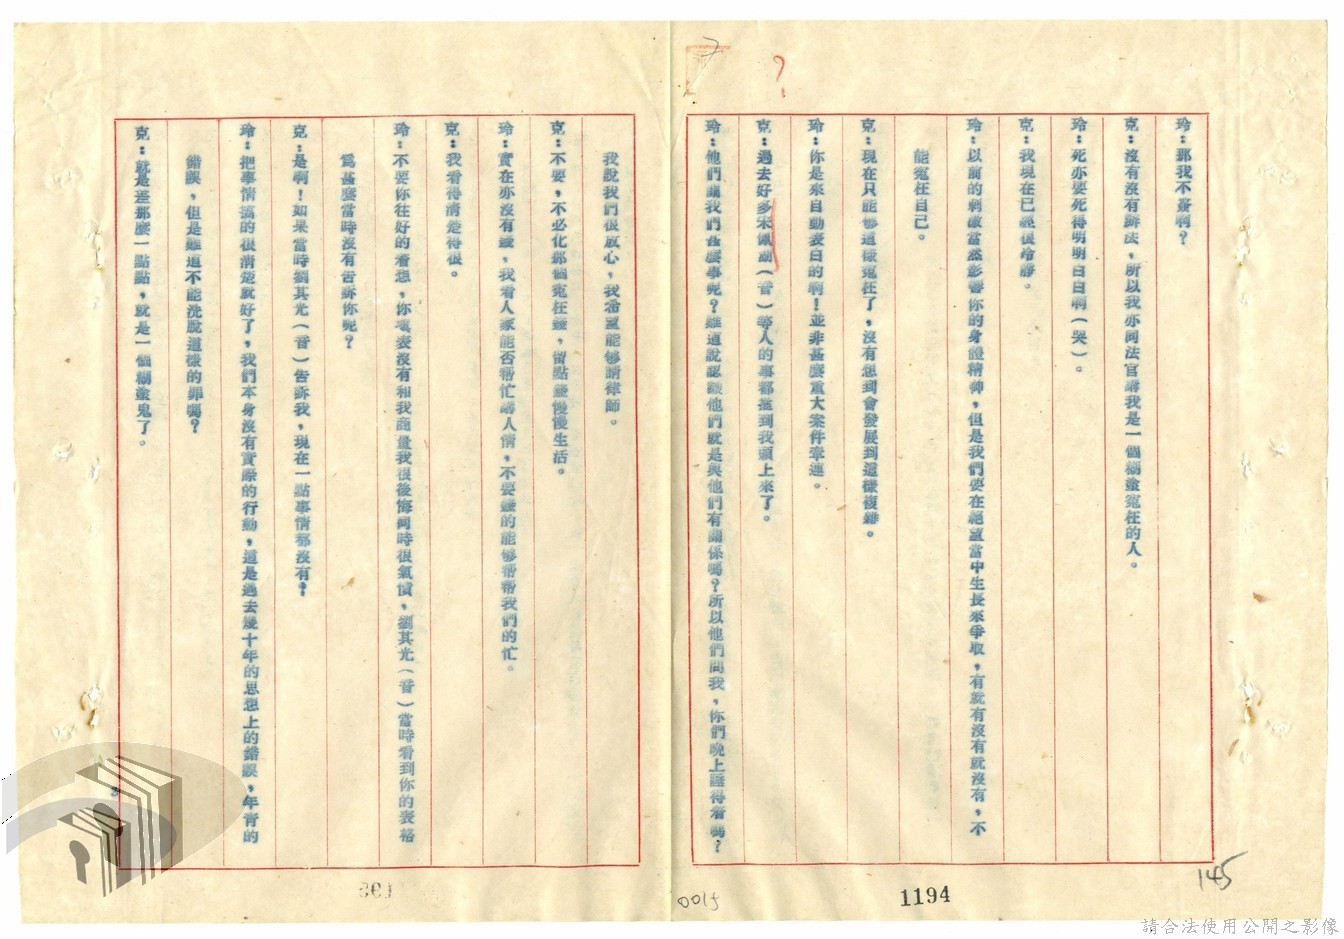 玲：那我不簽啊？
克：沒有沒有辦法，所以我亦同法官講我是一個糊塗冤枉的人。
玲：死亦要死得明明白白啊（哭）。
克：我現在已經很冷靜。
玲：以前的刺激當然影響你的身體精神，但是我們要在絕望當中生長來爭取，有就有沒有就沒有，不
能冤枉自己。
克：現在只能够這樣冤枉了，沒有想到會發展到這樣複雜。
玲：你是來自動表白的啊！並非甚麼重大案件牽連。
克：過去好多宋 （音）等人的事都 到我頭上來了。
玲：他們 我們 麼事呢？難道說認識他們就是與他們有關係嗎？所以他們問我，你們晚上睡得着嗎？
我說我們很放心，我希望能够請律師。
克：不要，不必化那個冤枉錢，留點錢慢慢生活。
玲：實在亦沒有錢，我看人家能否幫忙講人情，不要錢的能够幫幫我們的忙。
克：我看得清楚得很。
玲：不要你往好的看想，你填表沒有和我商量我很後悔 時很氣憤，劉其光（音）當時看到你的表格
爲甚麼當時沒有告訴你呢？
克：是啊！如果當時劉其光（音）告訴我，現在一點事情都沒有？
玲：把事情搞的很清楚就好了，我們本身沒有實際的行動，這是過去幾十年的思想上的錯誤，年青的
錯誤，但是難道不能洗脫這樣的罪嗎？
克：就是差那麼一點點，就是一個糊塗鬼了。
？
0015
1194
145
請合法使用公開之影像